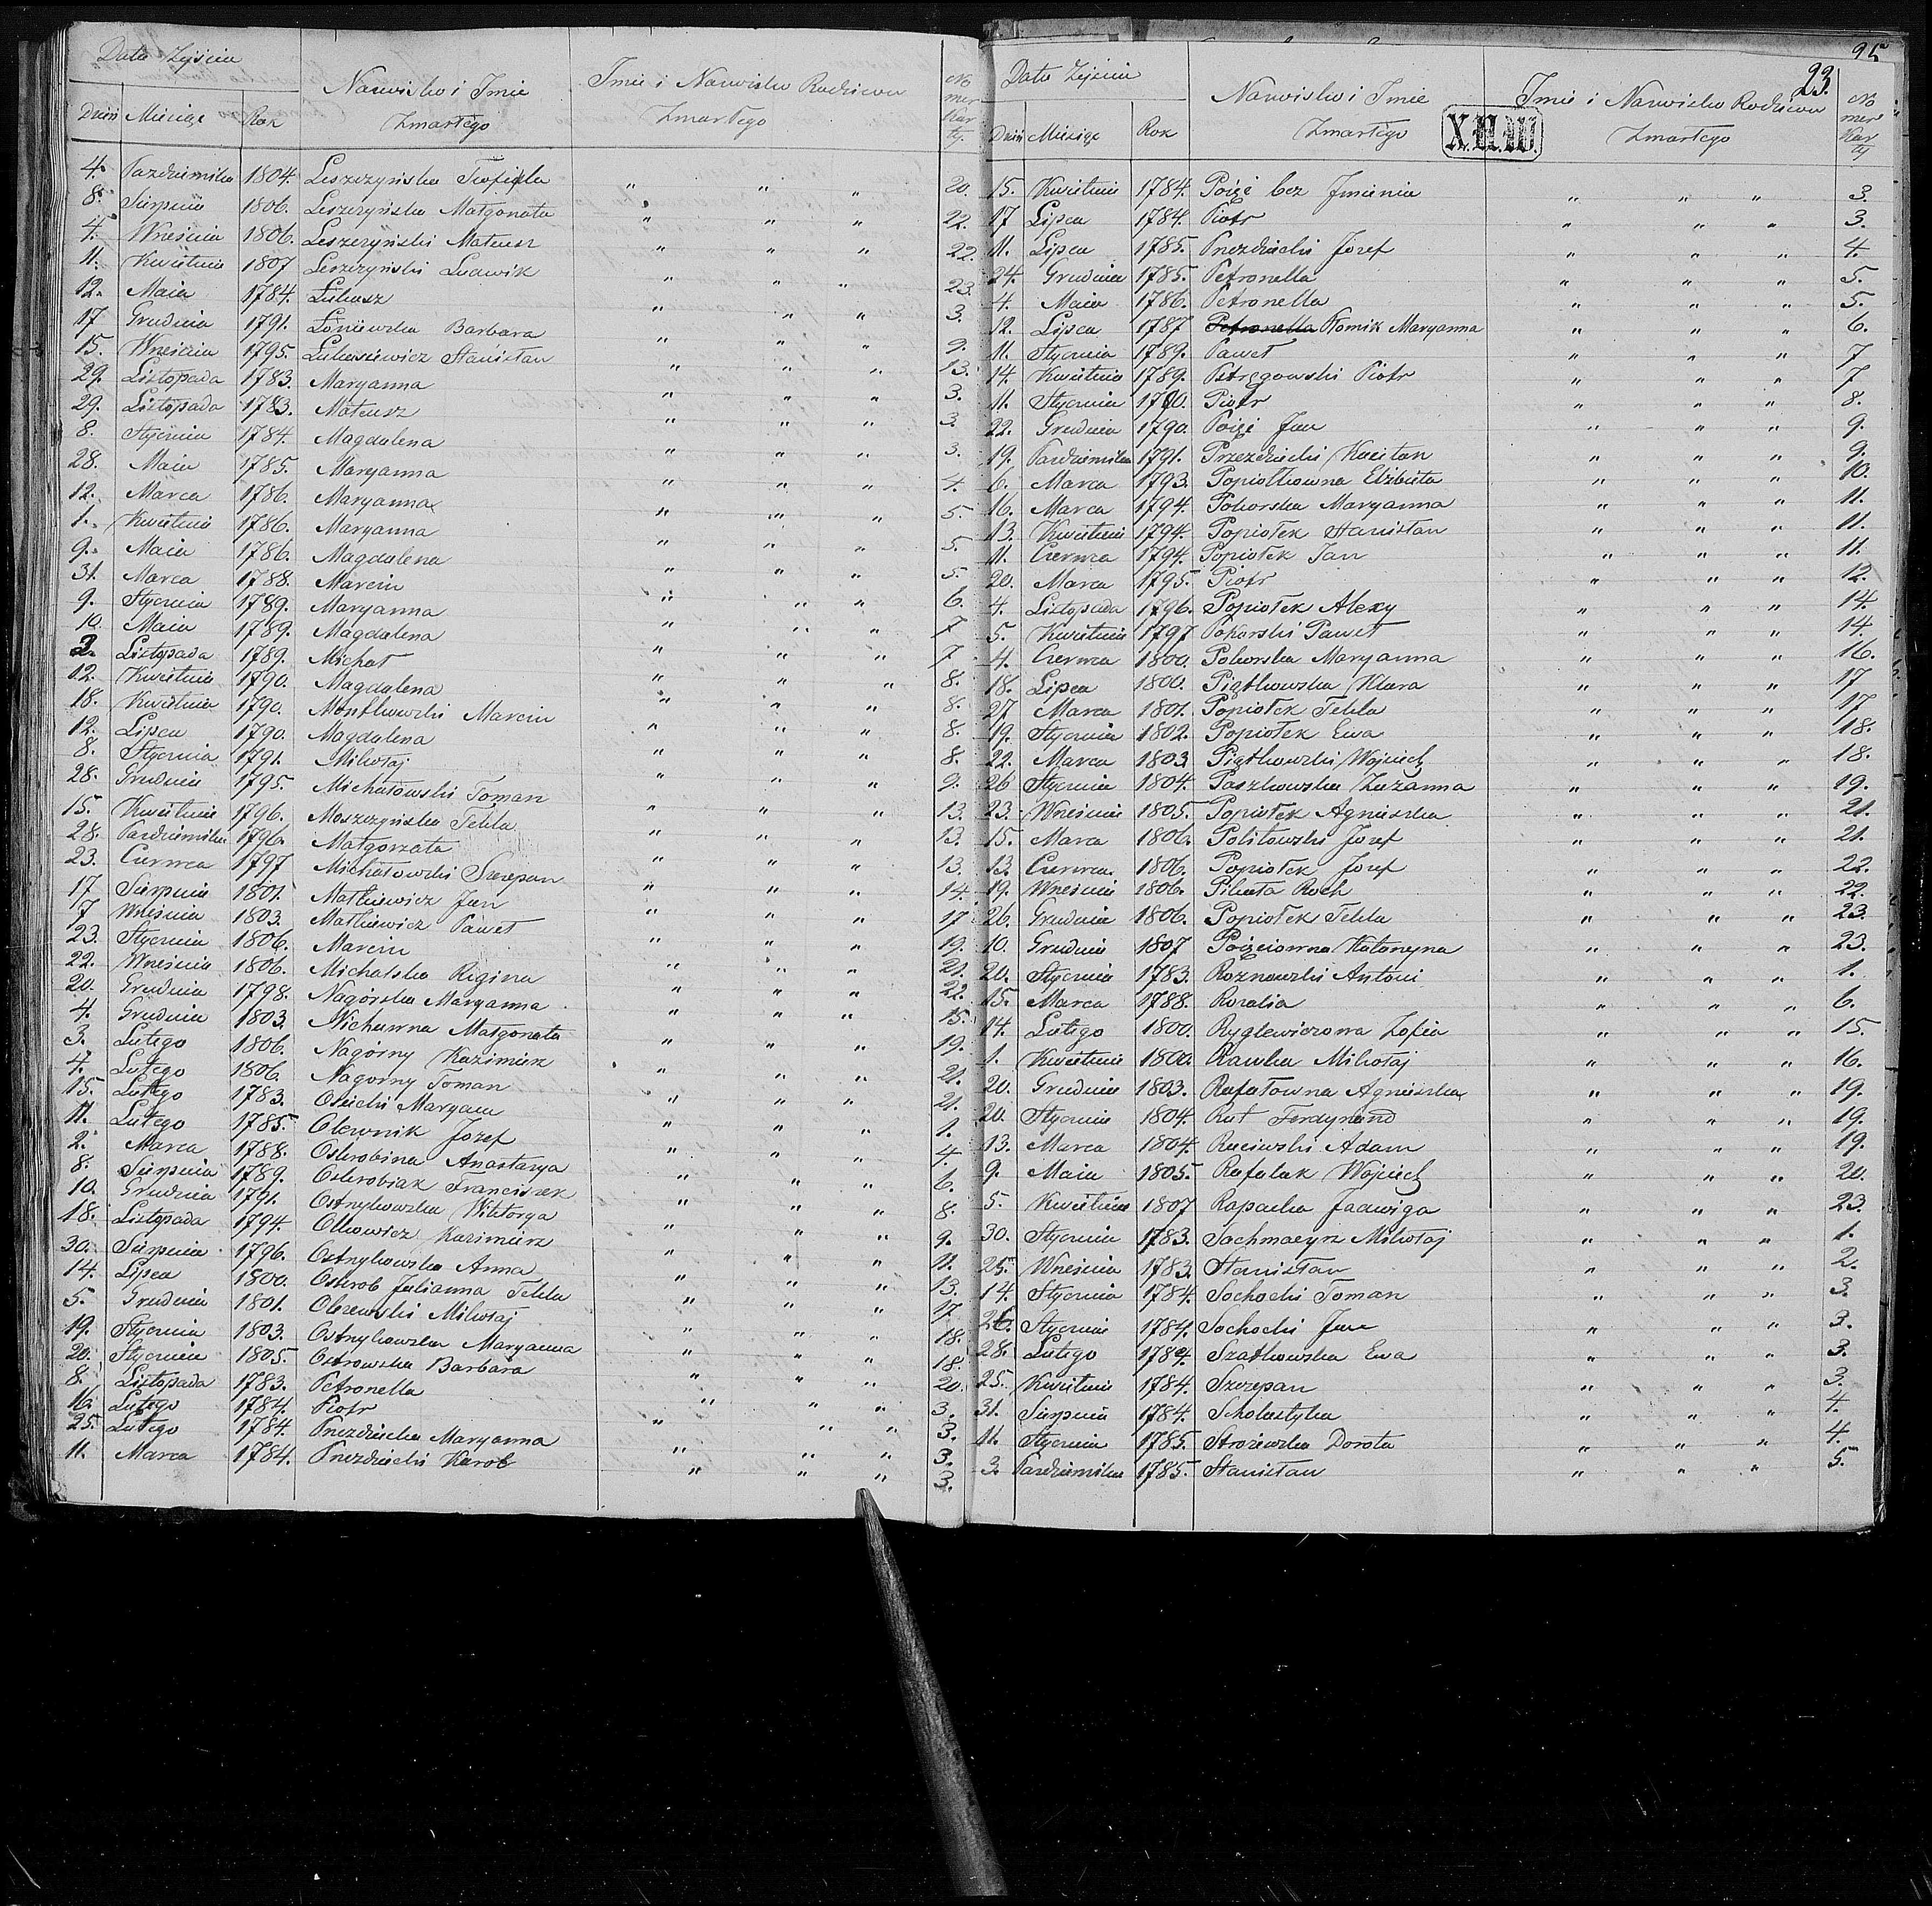 Data Zejścia
Nazwisko i Imie Zmarłego
Imie i Nazwisko Rodziców Zmarłego
No mer Kar ty.
Dzień Miesiąc Rok
4. Pazdziernika 1804. Leszczyńska Teofila " " " 20.
8. Sierpnia 1806. Leszczyńska Małgorzata " " " 22.
4. Września 1806. Leszczyński Mateusz " " " 22.
11. Kwietnia 1807 Leszczyński Ludwik " " " 23.
12. Maia 1784. Łukasz " " " 3.
17 Grudnia 1791. Łoniewska Barbara " " " 9.
15. Września 1795. Łukasiewicz Stanisław " " " 13.
29. Listopada 1783. Maryanna " " " 3.
29. Listopada 1783. Mateusz " " " 3.
8. Stycznia 1784. Magdalena " " " 3.
28. Maia 1785. Maryanna " " " 4.
12. Marca 1786. Maryanna " " " 5.
1. Kwietnia 1786. Maryanna " " " 5.
9. Maia 1786. Magdalena " " " 5.
31. Marca 1788. Marcin " " " 6.
9. Stycznia 1789. Maryanna " " " 7
10. Maia 1789. Magdalena " " " 7
2. Listopada 1789. Michał " " " 8.
12. Kwietnia 1790. Magdalena " " " 8.
18. Kwietnia 1790. Marcin " " " 8.
12. Lipca 1790. Magdalena " " " 8.
8. Stycznia 1791. Mikołaj " " " 9.
28. Grudnia 1795. Michałowski Toman " " " 13.
15. Kwietnia 1796. Moszczyńska Tekla " " " 13.
28. Pazdziernika 1796. Małgorzata " " " 13.
23. Czerwca 1797 Michałowski Szczepan " " " 14.
17 Sierpnia 1801. Matkiewicz Jan " " " 17
7 Września 1803. Matkiewicz Paweł " " " 19.
23. Stycznia 1806. Marcin " " " 21.
22. Września 1806. Michalska Regina " " " 22.
20. Grudnia 1798. Nagórska Maryanna " " " 15.
4. Grudnia 1803. Małgorzata " " " 19.
3. Lutego 1806. Nagórny Kazimierz " " " 21.
4. Lutego 1806. Nagorny Toman " " " 21.
15. Lutego 1783. Osiecki Maryan " " " 1.
11. Lutego 1785. Olewnik Jozef " " " 4.
2. Marca 1788. Oskrobina Anastazya " " " 6.
8. Sierpnia 1789. Oskrobiak Franciszek " " " 8.
10. Grudnia 1791. Ostrykowska Wiktorya " " " 9.
18. Listopada 1794. Olkowicz Kazimierz " " " 11.
30. Sierpnia 1796. Ostrykowska Anna " " " 13.
14. Lipca 1800. Oskrob Julianna Tekla " " " 17
5. Grudnia 1801. Olszewski Mikołaj " " " 18.
19. Stycznia 1803. Ostrykowska Maryanna " " " 18.
20. Stycznia 1805. Ostrowska Barbara " " " 20.
8. Listopada 1783. Petronella " " " 3.
16. Lutego 1784. Piotr " " " 3.
25. Lutego 1784. Przezdziecka Maryanna " " " 3.
11. Marca 1784. Przezdziecki Karol " " " 3.
95
23.
Data Zejścia
Nazwisko i Imie Zmarłego
Imie i Nazwisko Rodziców Zmarłego
No mer Kar ty
Dzień Miesiąc Rok
15. Kwietnia 1784. bez Jmienia " " " 3.
17 Lipca 1784. Piotr " " " 3.
11. Lipca 1785. Przezdziecki Jozef " " " 4.
24. Grudnia 1785. Petronella " " " 5.
4. Maia 1786. Petronella " " " 5.
12. Lipca 1787 Petronella Płomik Maryanna " " " 6.
11. Stycznia 1789. Paweł " " " 7
14. Kwietnia 1789. Piotr " " " 7
11. Stycznia 1790. Piotr " " " 8.
22. Grudnia 1790. Jan " " " 9.
19. Pazdziernika 1791. Przezdziecki Kaietan " " " 9.
6. Marca 1793. Popiołkowna Elżbieta " " " 10.
16. Marca 1794. Pokorska Maryanna " " " 11.
13. Kwietnia 1794. Popiołek Stanisław " " " 11.
11. Czerwca 1794. Popiołek Jan " " " 11.
20. Marca 1795. Piotr " " " 12.
4. Listopada 1796. Popiołek Alexy " " " 14.
5. Kwietnia 1797 Pokorski Paweł " " " 14.
4. Czerwca 1800. Pokorska Maryanna " " " 16.
18. Lipca 1800. Piątkowska Klara " " " 17
27 Marca 1801. Popiołek Tekla " " " 17
19. Stycznia 1802. Popiołek Ewa " " " 18.
22. Marca 1803. Piątkowski Wojciech " " " 18.
26 Stycznia 1804. Paszkowska Zuzanna " " " 19.
23. Września 1805. Popiołek Agnieszka " " " 21.
15. Marca 1806. Politowski Jozef " " " 21.
13. Czerwca 1806. Popiołek Jozef " " " 22.
19. Września 1806. Pikata Roch " " " 22.
26. Grudnia 1806. Popiołek Tekla " " " 23.
10. Grudnia 1807 Katarzyna " " " 23.
20. Stycznia 1783. Roznowski Antoni " " " 1.
15. Marca 1788. Rozalia " " " 6.
14. Lutego 1800. Ryglewiczowa Zofia " " " 15.
1. Kwietnia 1800. Rawka Mikołaj " " " 16.
20. Grudnia 1803. Rafałowna Agnieszka " " " 19.
20. Stycznia 1804. Rut Ferdynand " " " 19.
13. Marca 1804. Raciwski Adam " " " 19.
9. Maia 1805. Rafalak Wojciech " " " 20.
5. Kwietnia 1807 Rapacka Jadwiga " " " 23.
30. Stycznia 1783. Sochmaczyz Mikołaj " " " 1.
25. Września 1783. Stanisław " " " 2.
14. Stycznia 1784. Sochocki Toman " " " 3.
26. Stycznia 1784. Sochocki Jan " " " 3.
28. Lutego 1784. Szatkowska Ewa " " " 3.
25. Kwietnia 1784. Szczepan " " " 3.
31. Sierpnia 1784. Scholastyka " " " 4.
11. Stycznia 1785. Strożewska Dorota " " " 4.
3. Pazdziernika 1785. Stanisław " " " 5.